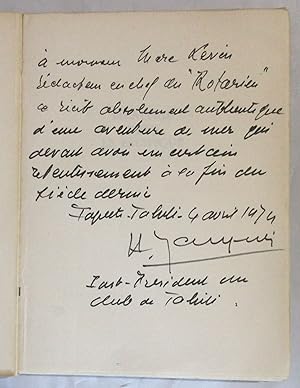 à monsieur Marc Kevin
Rédacteur en chef du "Rotarien"
ce récit absolument authentique
d'une aventure de mer qui
devait avoir un certain
retentissement à la fin du
siècle dernier
Papeete-Tahiti-4 avril 1974
Past-Président du
club de Tahiti.